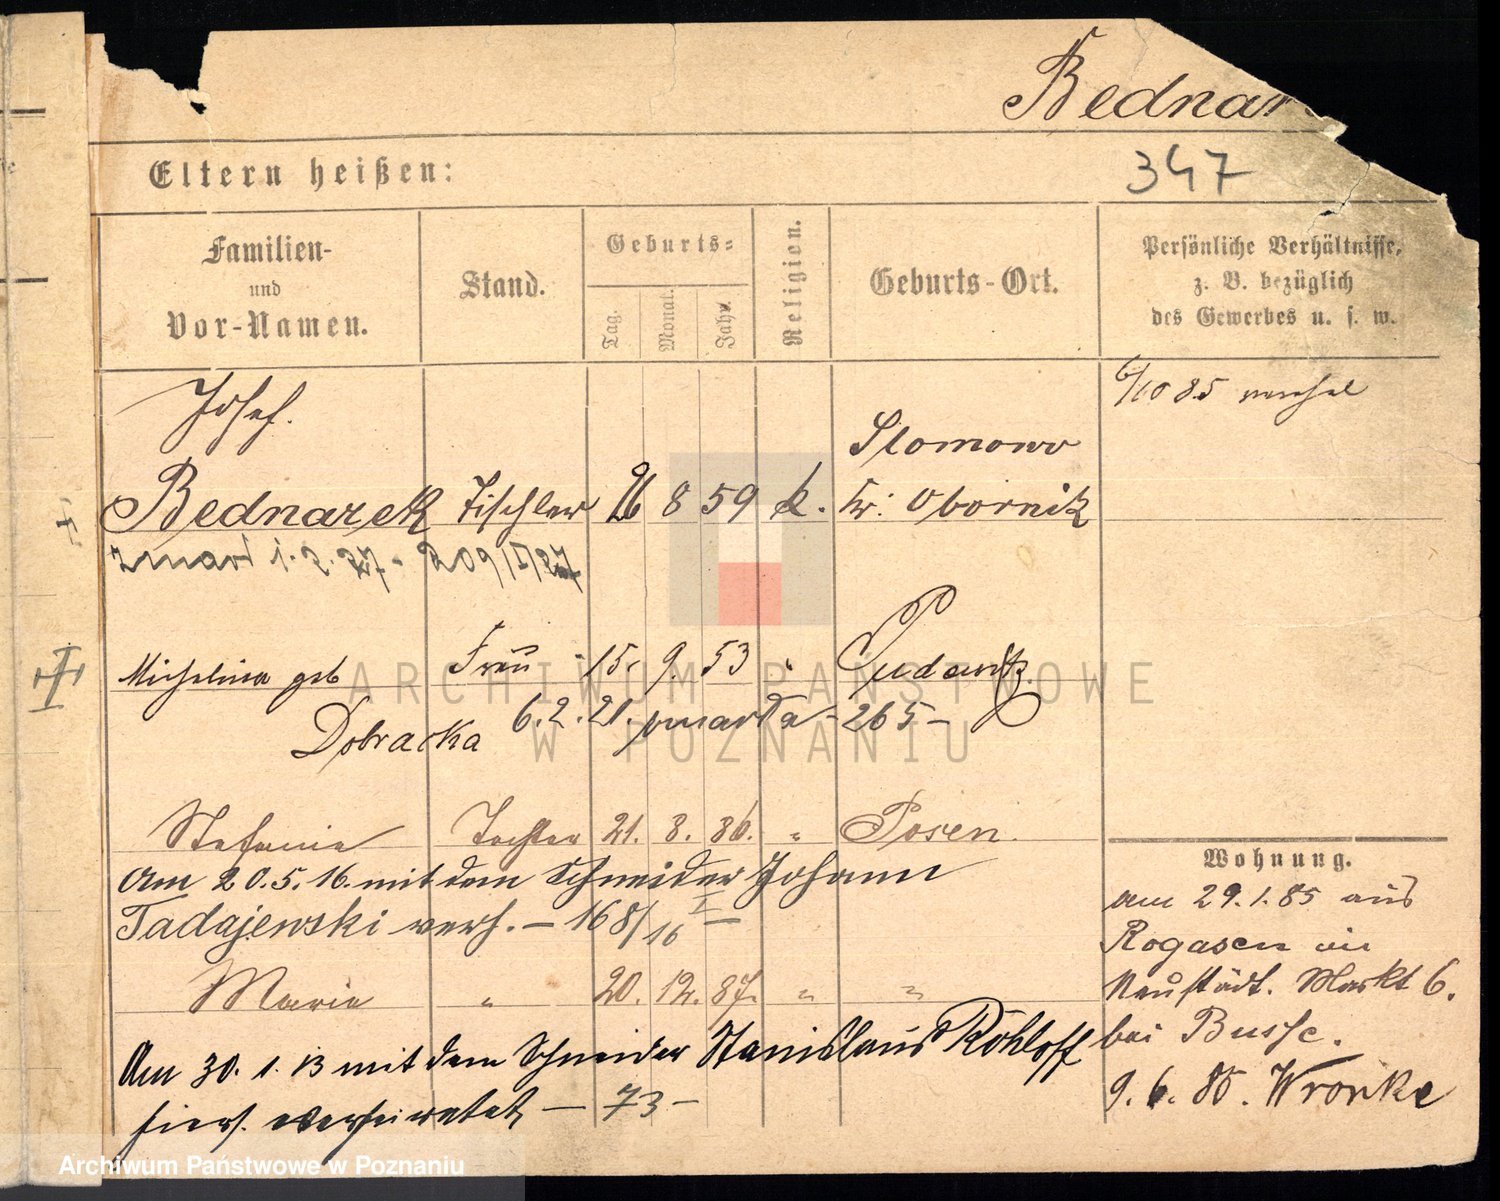 Bednar
Eltern heißen:
347
Familien-
und
Vor-Namen.
Stand.
Geburts-
Tag.
Monat.
Jahr.
Religion.
Geburts-Ort.
Persönliche Verhältnisse,
z. B. bezüglich
des Gewerbes u. s. w.
Josef.
Bednarek Tischler 26 8 59 k.
Slomowo
Kr: Obornik
6/10 85
zmarł 1.3.37 - 209/I/37
Michalina geb Frau 15. 9. 53 " Pudewitz.
Dobracka 6.2.21. zmarła - 265 -
Stefanie Tochter 21. 8. 86. " Posen.
Am 20.5.16. mit dem Schneider Johann
Tadajewski verh. - 168/16 I
Marie " 20. 12. 87. " "
Am 30.1.13 mit dem Schneider Stanislaus Rohloff
hiers. verheiratet - 73 -
Wohnung.
am 29.1.85 aus
Rogasen in
Neustädt. Markt 6.
bei Busse.
9.6.85. Wronke
ARCHIWUM PAŃSTWOWE
W POZNANIU
Archiwum Państwowe w Poznaniu